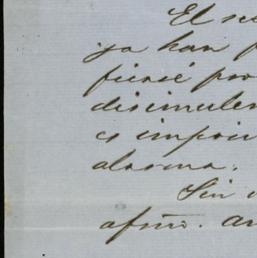 El se
ya han p
ficasé por
disimulen
es impoi
alarma.
Sin
afmo. am